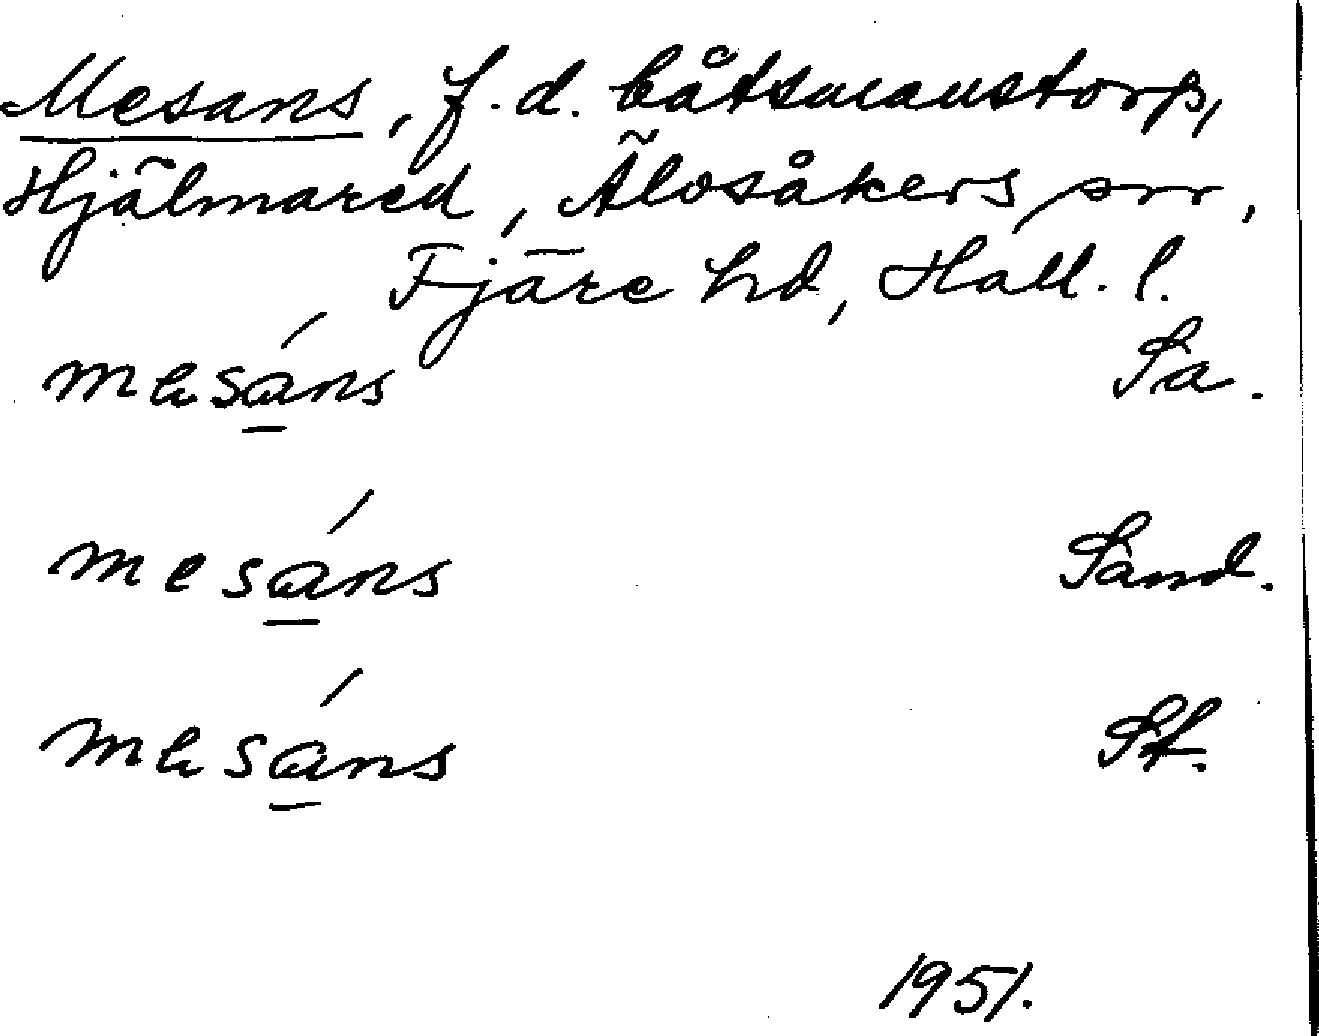 Mesans, f.d. båtsmanstorp,
Hjälmared, Älvsåkers srr,
Fjäre hd, Hall. l.
mesáns Sa.
mesáns Sand.
mesáns St.
1951.